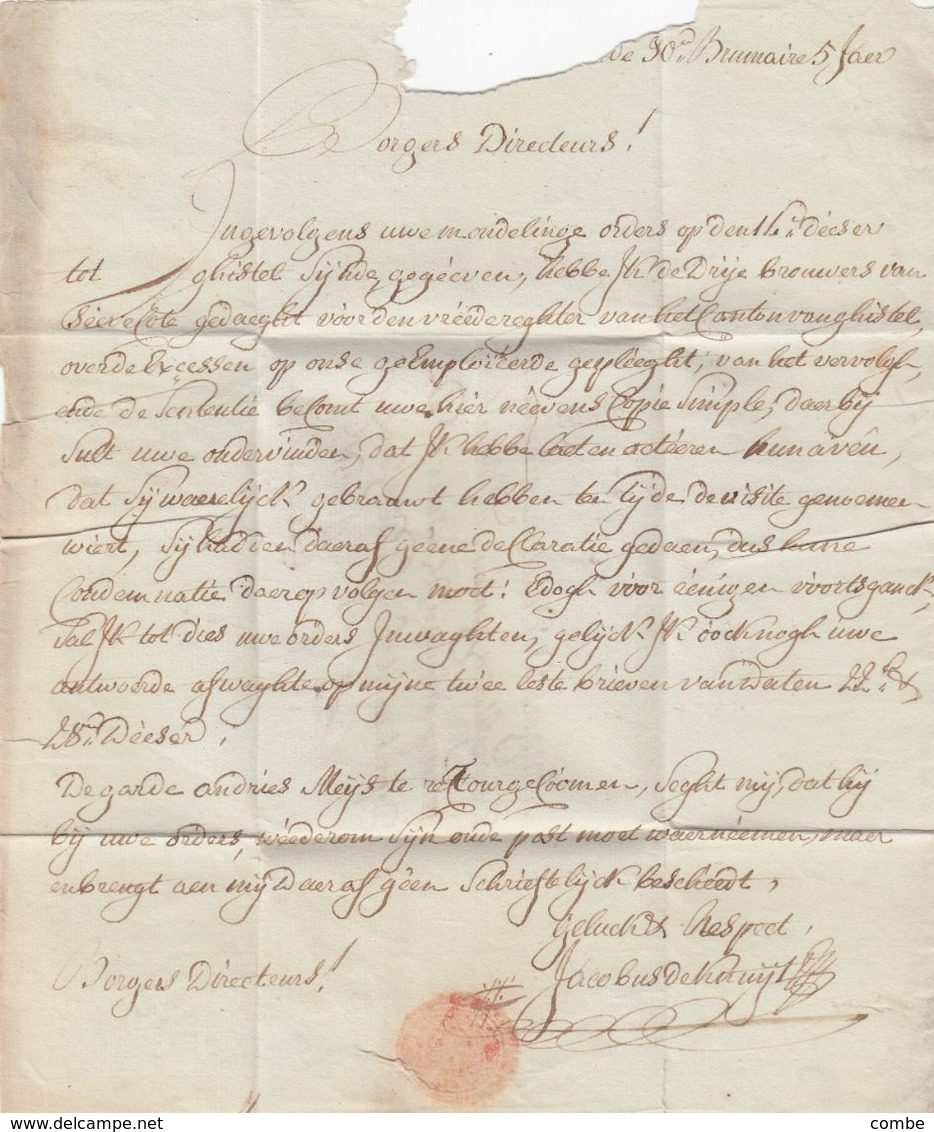 de 30en Brumaire 5 Jaer
Borgers Directeurs!
Ingevolgens uwe mondelinge orders op den 14en deeser
tot ghistel sijnde gegeeven, hebbe Jk de Drije brouwers van
gedaeght voor den vréedereghter van het Canton van ghistel,
over de Excessen op onse geEmploieerde gepleeght, van het vervolgh,
ende de Sententie becomt uwe hier néevens Copie Simple, daer bij
Sult uwe ondervinden, dat Jk hebbe laeten acteeren hun aven,
dat Sij waerelijck gebrauwt hebben ten tijde de visite genoemen
wiert, Sij hadden daer af géene declaratie gedaen, dus
Condemnatie daer op volgen moet: Edogh vóor éenigen vóortsganck,
Sal Jk tot dies uwe orders Jnwaghten, gelijck Jk óock nogh uwe
antwoorde afwaghte op mijne twee leste brieven van daten 22en &
28en Déeser,
De garde andries Meijs te retour gecóomen, Seght mij, dat hij
bij uwe orders, wéederom Sijn oude post moet waernéemen, maer
en brengt aen mij daer af géen Schriftelijck bescheedt,
geluck & Respect,
Borgers Directeurs! Jacobus de Kruijt
www.delcampe.net combe